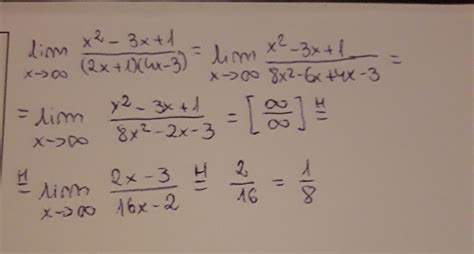 lim x→∞ (x² - 3x + 1)/((2x+1)(4x-3)) = lim x→∞ (x² - 3x + 1)/(8x² - 6x + 4x - 3) =
= lim x→∞ (x² - 3x + 1)/(8x² - 2x - 3) = [∞/∞] H=
H= lim x→∞ (2x - 3)/(16x - 2) H= 2/16 = 1/8